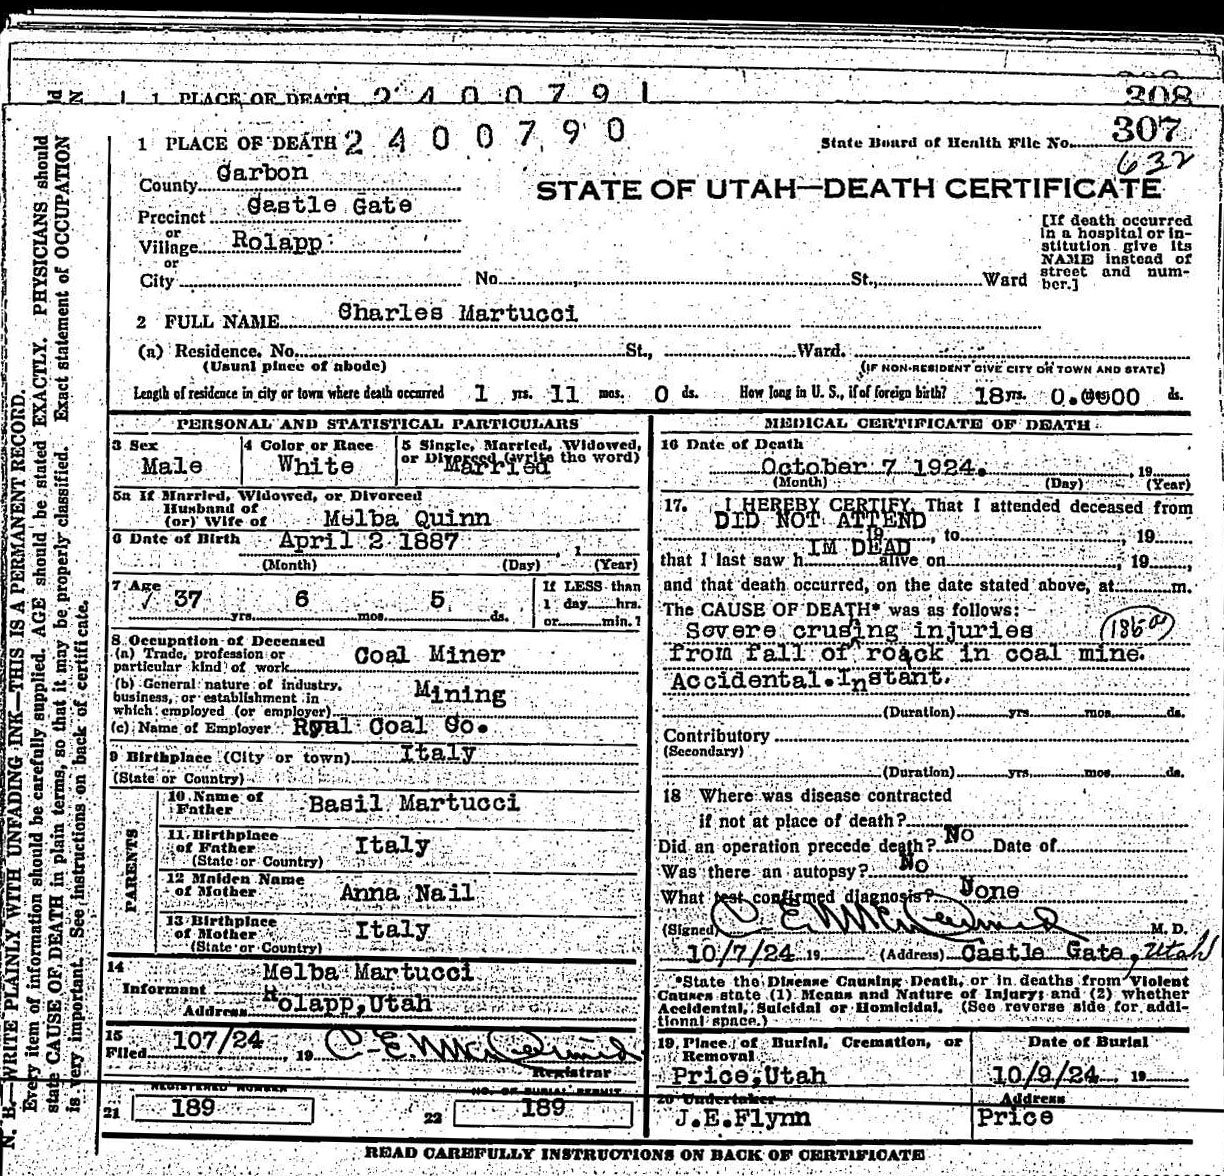 308
1 PLACE OF DEATH 2 4 0 0 7 9
1 PLACE OF DEATH 2 4 0 0 7 9 0
State Board of Health File No. 307
632
County Carbon
STATE OF UTAH—DEATH CERTIFICATE
Precinct Castle Gate
or
Village Rolapp
or
City No. St., Ward
[If death occurred
in a hospital or in-
stitution give its
NAME instead of
street and num-
ber.]
2 FULL NAME Charles Martucci
(a) Residence. No. St., Ward.
(Usual place of abode) (IF NON-RESIDENT GIVE CITY OR TOWN AND STATE)
Length of residence in city or town where death occurred 1 yrs. 11 mos. 0 ds. How long in U. S., if of foreign birth? 18 yrs. 0.0000 ds.
PERSONAL AND STATISTICAL PARTICULARS
3 Sex 4 Color or Race 5 Single, Married, Widowed,
or Divorced (write the word)
Male White Married
5a If Married, Widowed, or Divorced
Husband of
(or) Wife of Melba Quinn
6 Date of Birth April 2 1887
(Month) (Day) (Year)
7 Age 37 yrs. 6 mos. 5 ds.
If LESS than
1 day hrs.
or min.?
8 Occupation of Deceased
(a) Trade, profession or
particular kind of work Coal Miner
(b) General nature of industry,
business, or establishment in
which employed (or employer) Mining
(c) Name of Employer Royal Coal Co.
9 Birthplace (City or town) Italy
(State or Country)
PARENTS
10 Name of
Father Basil Martucci
11 Birthplace
of Father Italy
(State or Country)
12 Maiden Name
of Mother Anna Nail
13 Birthplace
of Mother Italy
(State or Country)
14
Informant Melba Martucci
Address Rolapp,Utah
15
Filed 107/24, 19 C. E. McDermid
Registrar
REGISTERED NUMBER NO. OF BURIAL PERMIT
21 189 22 189
MEDICAL CERTIFICATE OF DEATH
16 Date of Death
October 7 1924. , 19
(Month) (Day) (Year)
17. I HEREBY CERTIFY, That I attended deceased from
DID NOT ATTEND
19 , to , 19
that I last saw h IM DEAD alive on , 19 ,
and that death occurred, on the date stated above, at m.
The CAUSE OF DEATH* was as follows:
Severe crusing injuries
from fall of roack in coal mine.
Accidental.Instant.
(Duration) yrs. mos. ds.
Contributory
(Secondary)
(Duration) yrs. mos. ds.
18 Where was disease contracted
if not at place of death?
Did an operation precede death? No Date of
Was there an autopsy? No
What test confirmed diagnosis? None
(Signed) C. E. McDermid M. D.
10/7/24 19 (Address) Castle Gate, Utah
*State the Disease Causing Death, or in deaths from Violent
Causes state (1) Means and Nature of Injury; and (2) whether
Accidental, Suicidal or Homicidal. (See reverse side for addi-
tional space.)
19 Place of Burial, Cremation, or
Removal
Date of Burial
Price,Utah 10/9/24 19
20 Undertaker Address
J.E.Flynn Price
READ CAREFULLY INSTRUCTIONS ON BACK OF CERTIFICATE
N. B.—WRITE PLAINLY WITH UNFADING INK—THIS IS A PERMANENT RECORD.
Every item of information should be carefully supplied. AGE should be stated EXACTLY. PHYSICIANS should
state CAUSE OF DEATH in plain terms, so that it may be properly classified. Exact statement of OCCUPATION
is very important. See instructions on back of certificate.